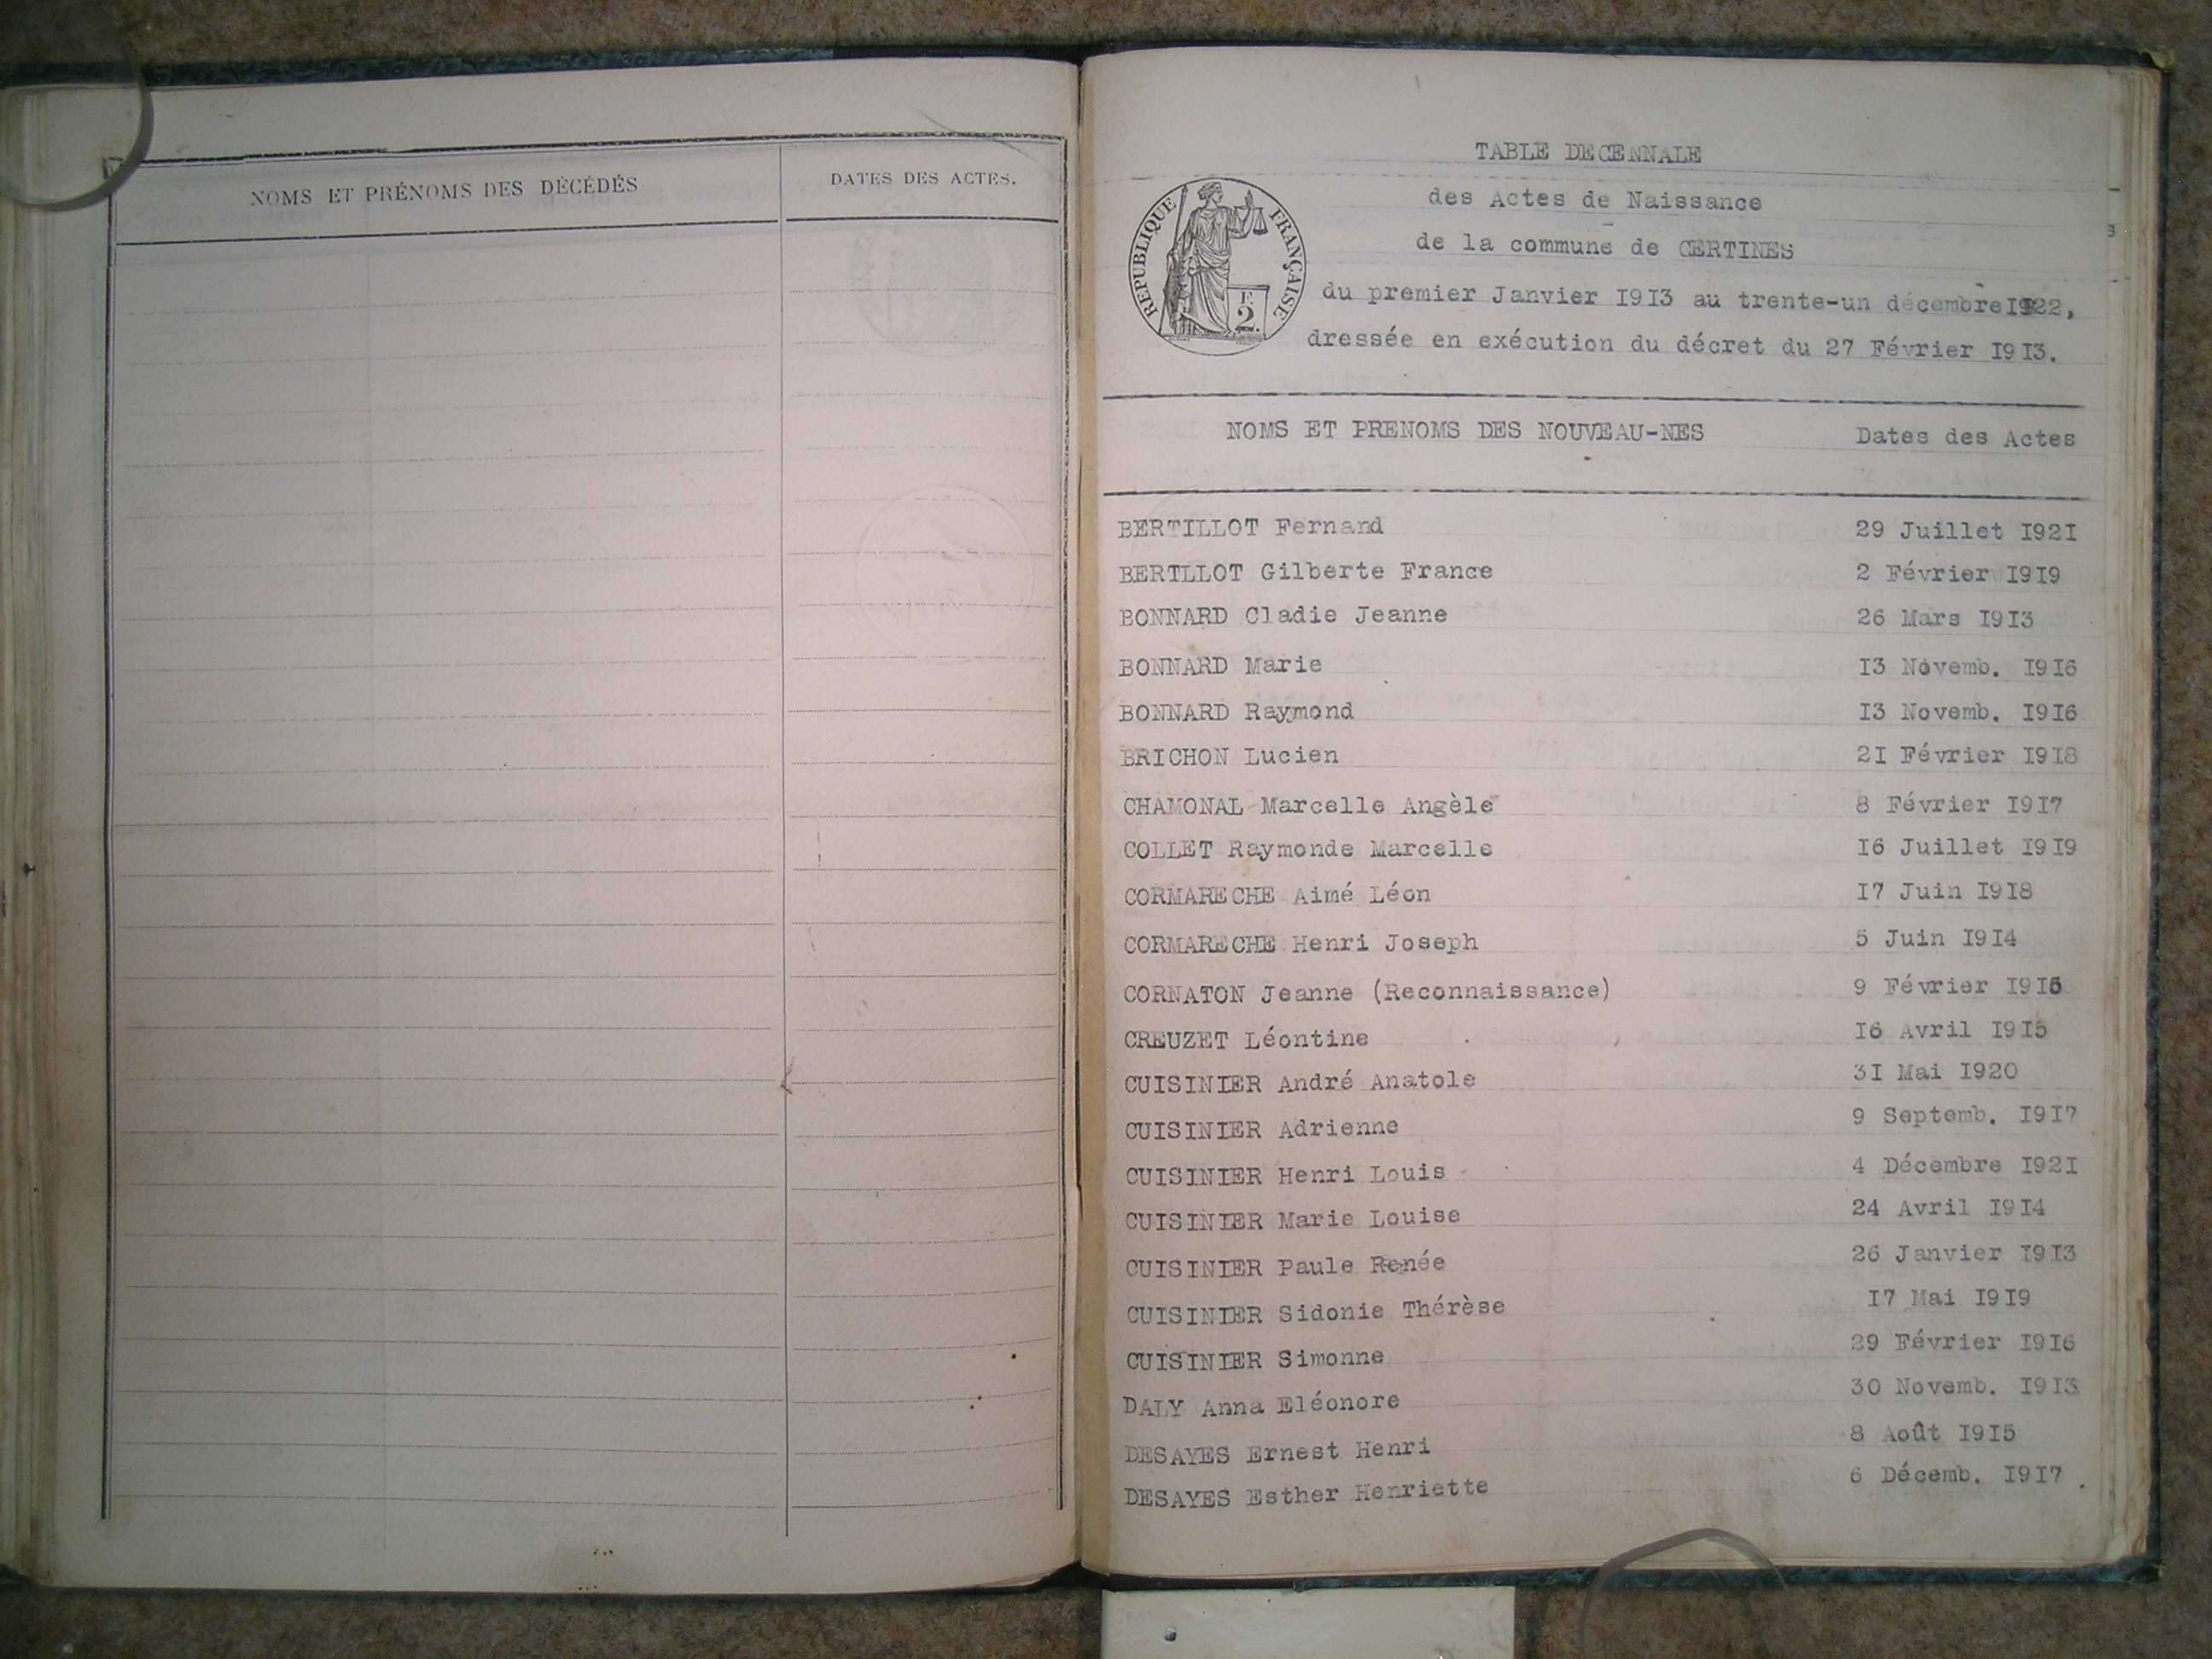 NOMS ET PRÉNOMS DES DÉCÉDÉS
DATES DES ACTES.
TABLE DECENNALE
des Actes de Naissance
de la commune de CERTINES
du premier Janvier I9I3 au trente-un décembre I922,
dressée en exécution du décret du 27 Février I9I3.
REPUBLIQUE FRANÇAISE
F.
2.
NOMS ET PRENOMS DES NOUVEAU-NES Dates des Actes
BERTILLOT Fernand 29 Juillet I92I
BERTLLOT Gilberte France 2 Février I9I9
BONNARD Cladie Jeanne 26 Mars I9I3
BONNARD Marie I3 Novemb. I9I6
BONNARD Raymond I3 Novemb. I9I6
BRICHON Lucien 2I Février I9I8
CHAMONAL Marcelle Angèle 8 Février I9I7
COLLET Raymonde Marcelle I6 Juillet I9I9
CORMARECHE Aimé Léon I7 Juin I9I8
CORMARECHE Henri Joseph 5 Juin I9I4
CORNATON Jeanne (Reconnaissance) 9 Février
CREUZET Léontine I6 Avril I9I5
CUISINIER André Anatole 3I Mai I920
CUISINIER Adrienne 9 Septemb. I9I7
CUISINIER Henri Louis 4 Décembre I92I
CUISINIER Marie Louise 24 Avril I9I4
CUISINIER Paule Renée 26 Janvier I9I3
CUISINIER Sidonie Thérèse I7 Mai I9I9
CUISINIER Simonne 29 Février I9I6
DALY Anna Eléonore 30 Novemb. I9I3
DESAYES Ernest Henri 8 Août I9I5
DESAYES Esther Henriette 6 Décemb. I9I7